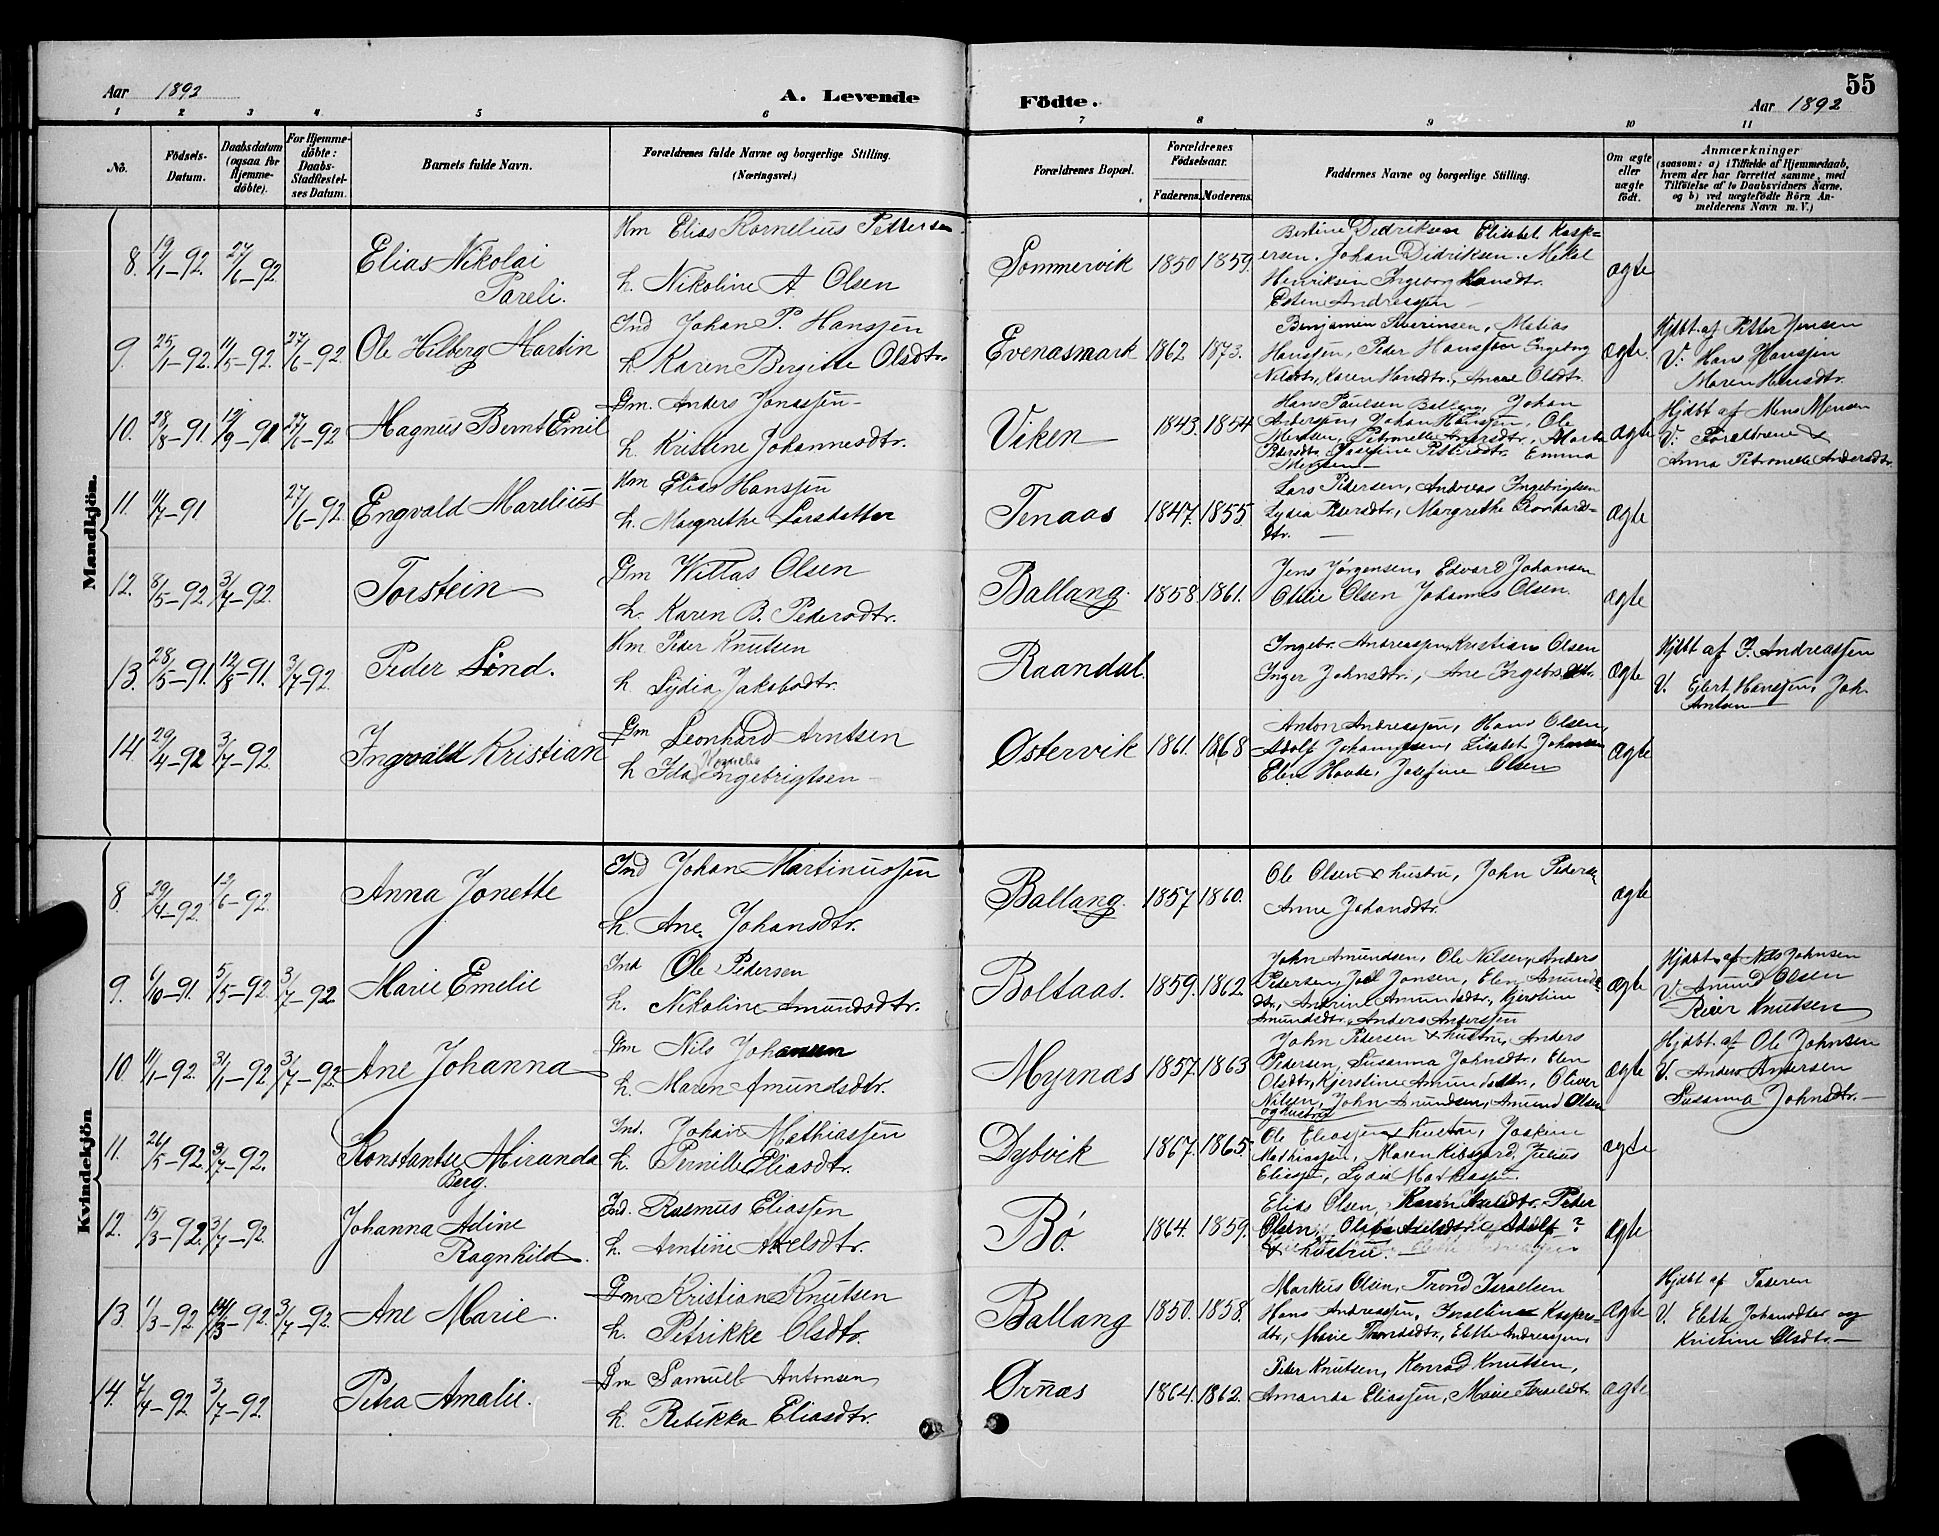 Aar 1892
A. Levende
Födte.
Aar 1892
55
1 2 3 4 5 6 7 8 9 10 11
No.
Födsels-Datum.
Daabsdatum (ogsaa for hjemmedöbte).
For Hjemmedöbte: Daabs-Stadfæstelses Datum.
Barnets fulde Navn.
Forældrenes fulde Navne og borgerlige Stilling. (Næringsvei.)
Forældrenes Bopæl.
Forældrenes Födselsaar.
Faderens. Moderens.
Faddernes Navne og borgerlige Stilling.
Om ægte eller uægte födt.
Anmærkninger
(saasom: a) i Tilfælde af Hjemmedaab,
hvem der har forrettet samme, med
Tilföielse af to Daabsvidners Navne,
og b) ved uægtefödte Börn An-
melderens Navn m. V.)
Mandkjön.
8. 19/1-92. 27/6-92 Elias Nikolai Pareli.
Km Elias Kornelius Pettersen
h. Nikoline A Olsen
Sommervik 1850 1859.
Bertine Dedriksen Elisabet Kasp=
ersen, Johan Didriksen. Mekal
Henriksen Ingeborg Hansdtr.
Esten Andreassen
ægte
9. 25/1-92. 11/5-92. 27/6-92 Ole Hilberg Martin
Ind Johan P. Hanssen
h Karen Bergitte Olsdtr.
Evenasmark 1862 1873.
Benjamin Severinsen, Matias
Hanssen, Peder Hanssen Ingeborg
Nilsdtr, Karen Hansdtr., Anne Olsdtr.
ægte.
Hjdbt. af Petter Jensen
V: Hans Hanssen
Maren Hansdtr.
10. 28/8-91. 19/9-91 27/6-92 Magnus Bernt Emil
Gm. Anders Jonassen
h. Kristine Johannesdtr.
Viken 1843. 1854
Hans Paulsen Ballang, Johan
Andersen, Johan Hanssen, Ole
Mensen, Petronelle Andersdtr., Marta
Pedersdtr Josefine Pettersdtr. Emma
Mensen
ægte
Hjdbt af Mens Mensen
V: Forældrene &
Anna Petronelle Andersdtr.
11. 11/7-91 27/6-92 Engvald Marelius
Km Elias Hanssen
h. Margrethe Larsdatter
Tenaas 1847. 1855.
Lars Pedersen, Andreas Ingebrigtsen
Lydia Pedersdtr, Margrethe Leonhards=
dtr.
ægte
12. 8/5-92. 3/7-92. Torstein
Gm Wittas Olsen
h. Karen B. Pedersdtr.
Ballang. 1858 1861.
Jens Jørgensen, Edvard Johansen
Ottilie Olsen Johannes Olsen.
ægte
13. 28/5-91. 12/8-91. 3/7-92. Peder Lind.
Km Peder Knutsen
h. Lydia Jakobsdtr.
Raandal.
Ingebr. Andreassen, Kristian Olsen
Inger Johnsdtr., Ane Ingebrsdtr.
ægte
Hjdbt af I. Andreassen
V. Ejlert Hanssen, Joh.
Antsen
14 29/4-92 3/7-92. Ingvald Kristian
Gm Leonhard Arntsen
h Ida Kornelia Ingebrigtsen
Østervik 1861. 1868
Anton Andreassen, Hans Olsen,
Adolf Johannesen, Lisabet Johansen
Elen Hovde, Josefine Olsen
ægte
Kvindekjön
8. 29/4-92. 12/6-92. Anna Jonette
Ind Johan Martinussen
h. Ane Johansdtr.
Ballang. 1857 1860.
Ole Olsen & hustru, John Pedersen
Anne Johansdtr.
ægte
9. 6/10-91. 5/5-92. 3/7-92 Marie Emelie
Ind Ole Pedersen
h. Nikoline Amundsdtr.
Boltaas. 1859. 1862.
John Amundsen, Ole Nilsen, Anders
Pedersen, Joel Jonsen, Elen Amunds=
dtr, Andrine Amundsdtr., Kjerstine
Amundsdtr, Anders Anderssen
ægte
Hjdbt. af Nils Johnsen
V. Amund Olsen
Peder Knutsen
10. 11/1-92. 31/1-92 3/7-92. Ane Johanna
Gm Nils Johansen
h. Maren Amundsdtr.
Myrnæs 1857. 1863
John Pedersen & hustru, Anders
Pedersen, Susanna Johnsdtr, Elen
Olsdtr, Kjerstine Amundsdtr., Oliver
Nilsen, John Amundsen, Amund Olsen
og hustru
ægte
Hjdbt. af Ole Johnsen
V. Anders Andersen
Susanna Johnsdtr.
11. 26/5-92. 3/7-92. Konstantse Miranda Berg.
Ind. Johan Mathiassen
h. Pernille Eliasdtr.
Dybvik 1867. 1865.
Ole Eliassen & hustru, Joakim
Mathiassen, Maren Kibsgård, Julius
Eliassen, Lydia Mathiassen.
ægte
12. 15/3-92. 3/7-92. Johanna Adine Ragnhild
Ind. Rasmus Eliassen
h. Arntine Akselsdtr.
Bø. 1864. 1859.
Elias Olsen, Karen Axelsdtr. Peder
Olsen, Axelsdtr. Adolf ?
& hustru.
ægte
13. 11/3-92 3/7-92. Ane Marie.
Gm Kristian Knutsen
h. Petrikke Olsdtr.
Ballang 1850. 1858.
Markus Olsen, Trond Israelsen
Hans Andreassen, Israeline Kaspers=
dtr, Marie Thorsdtr., Elette Andreassen.
ægte
Hjdbt af Faderen
V. Elette Johansdtr og
Kristine Olsdtr.
14. 7/4-92 3/7-92. Petra Amalie.
Gm Samuel Antonsen
h. Rebekka Eliasdtr.
Ørnæs 1864. 1862.
Peter Knutsen, Konrad Knutsen,
Amanda Eliassen, Marie Israelsdtr.
ægte